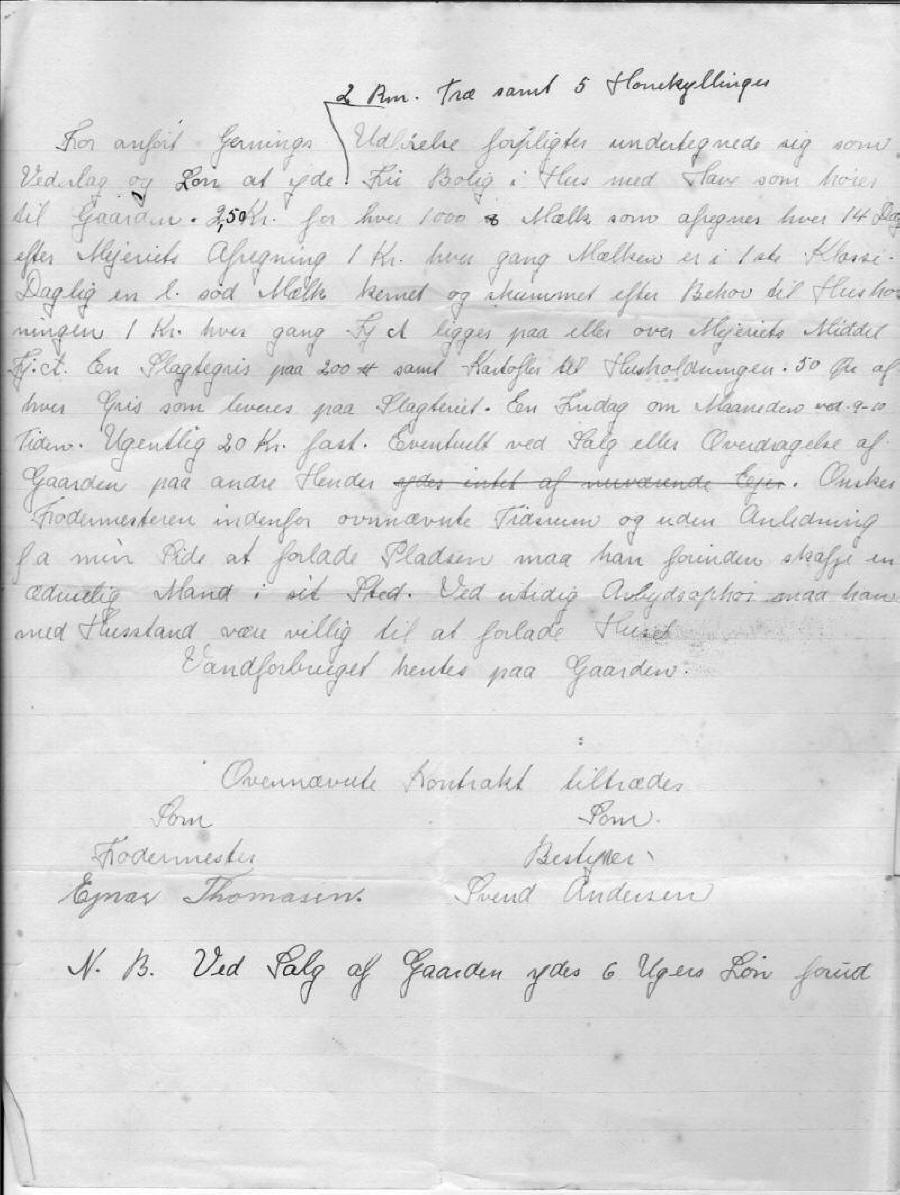 2 Rm. Træ samt 5 Hønekyllinger
For anført Gernings Udførelse forpligter undertegnede sig som
Vederlag og Løn at yde. Fri Bolig i Hus med Have som hører
til Gaarden. 2,50 Kr. for hver 1000 Mælk som afregnes hver 14 Dag
efter Mejeriets Afregning 1 Kr. hver gang Mælken er i 1ste Klasse.
Daglig en l. sød Mælk kernet og skummet efter Behov til Hushol
ningen 1 Kr. hver gang Fj ct ligger paa eller over Mejeriets Middel
Fj.ct. En Slagtegris paa 200 samt Kartofler til Husholdningen. 50 Øre af
hver Gris som leveres paa Slagteriet. En Fridag om Maaneden ved 9-10
Tiden. Ugentlig 20 Kr. fast. Eventuelt ved Salg eller Overdragelse af
Gaarden paa andre Hender ydes intet af nuværende Ejer. Ønsker
Fodermesteren indenfor ovnnævnte Tidsrum og uden Anledning
fa min Side at forlade Pladsen maa han forinden skaffe en
ædruelig Mand i sit Sted. Ved utidig Arbejdsophør maa han
med Husstand være villig til at forlade Huset
Vandforbruget hentes paa Gaarden.
Ovennævnte Kontrakt tiltrædes
Som Som.
Fodermester Bestyrer
Ejnar Thomasen. Svend Andersen
N. B. Ved Salg af Gaarden ydes 6 Ugers Løn forud